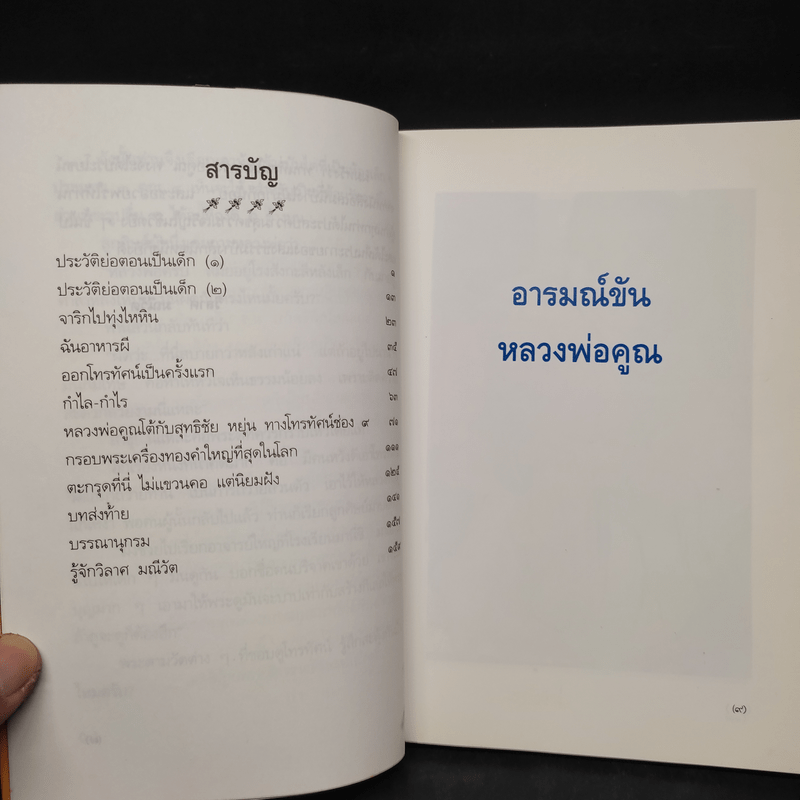 สารบัญ
ประวัติย่อตอนเป็นเด็ก (๑) ๑
ประวัติย่อตอนเป็นเด็ก (๒) ๑๓
จาริกไปทุ่งไหหิน ๒๓
ฉันอาหารผี ๓๕
ออกโทรทัศน์เป็นครั้งแรก ๔๗
กำไล-กำไร ๖๓
หลวงพ่อคูณโต้กับสุทธิชัย หยุ่น ทางโทรทัศน์ช่อง ๙ ๗๑
กรอบพระเครื่องทองคำใหญ่ที่สุดในโลก ๑๑๑
ตะกรุดที่นี่ ไม่แขวนคอ แต่นิยมฝัง ๑๒๕
บทส่งท้าย
บรรณานุกรม ๑๕๗
รู้จักวิลาศ มณีวัต
อารมณ์ขัน
หลวงพ่อคูณ
(๙)